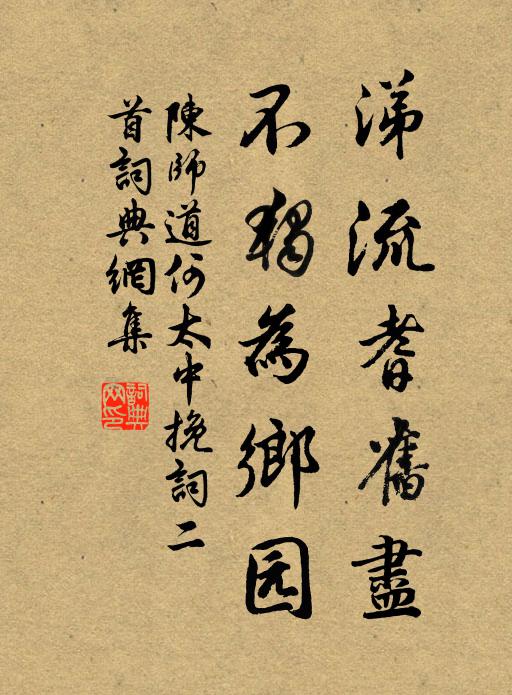 涕流耆舊盡
不獨為鄉园
陳師道何太中挽詞二
首詞典網集
詞典
网印